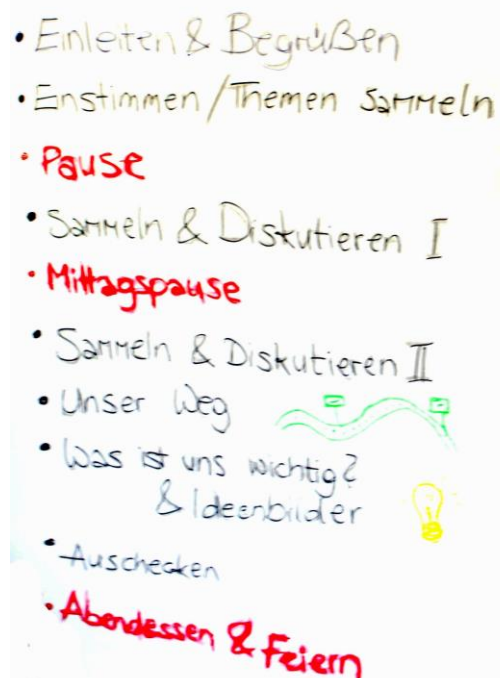 • Einleiten & Begrüßen
• Einstimmen/Themen Sammeln
• Pause
• Sammeln & Diskutieren I
• Mittagspause
• Sammeln & Diskutieren II
• Unser Weg
• Was ist uns wichtig?
& Ideenbilder
• Auschecken
• Abendessen & Feiern